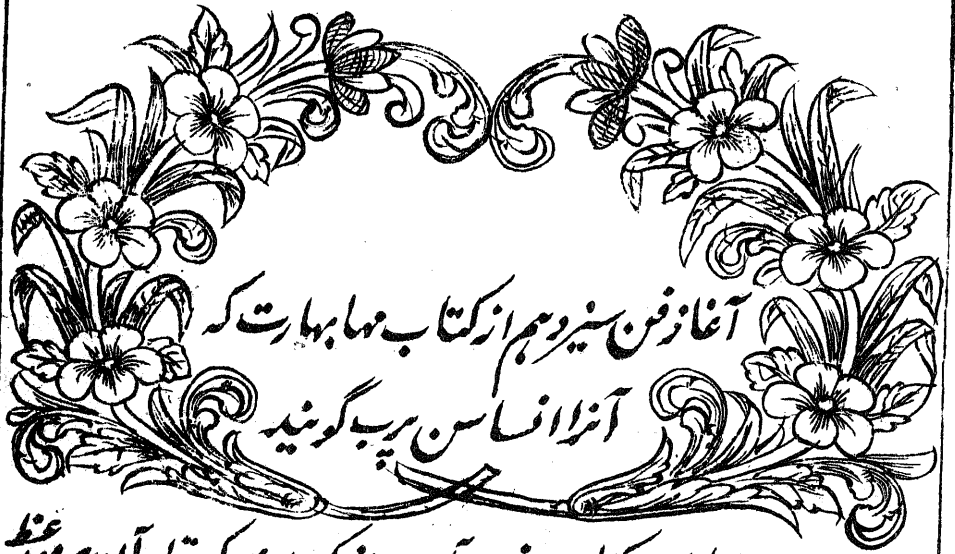 آغاز فن سیزدهم از کتاب مهابهارت که
آنرا انساسن پرب گویند